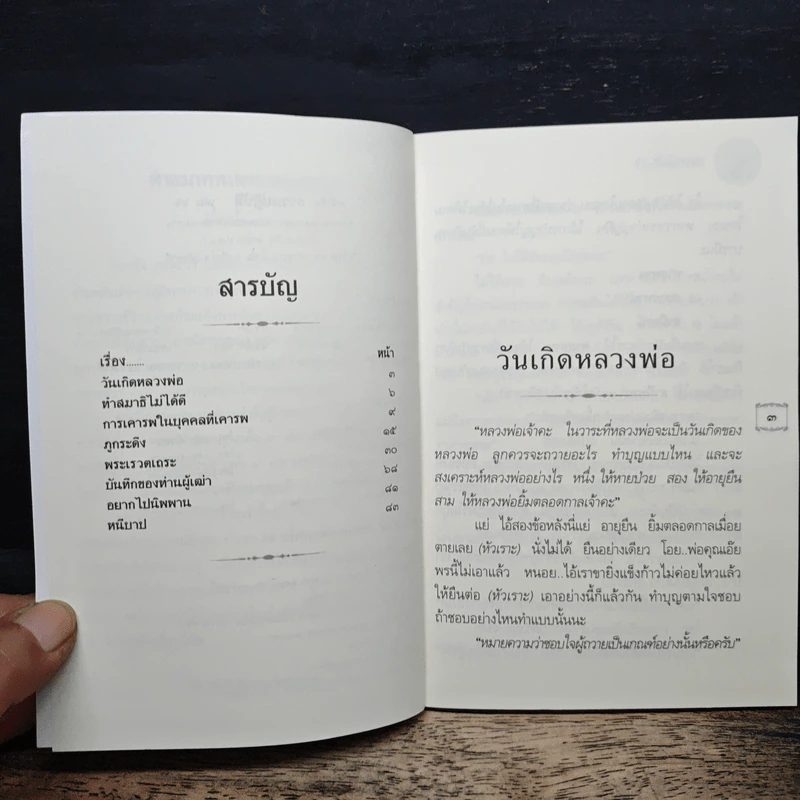 สารบัญ
เรื่อง....... หน้า
วันเกิดหลวงพ่อ ๓
ทำสมาธิไม่ได้ดี ๖
การเคารพในบุคคลที่เคารพ ๙
ภูกระดึง ๑๕
พระเรวตเถระ ๓๐
บันทึกของท่านผู้เฒ่า ๖๘
อยากไปนิพพาน ๘๑
หนีบาป ๘๓
วันเกิดหลวงพ่อ
๓
“หลวงพ่อเจ้าคะ ในวาระที่หลวงพ่อจะเป็นวันเกิดของ
หลวงพ่อ ลูกควรจะถวายอะไร ทำบุญแบบไหน และจะ
สงเคราะห์หลวงพ่ออย่างไร หนึ่ง ให้หายป่วย สอง ให้อายุยืน
สาม ให้หลวงพ่อยิ้มตลอดกาลเจ้าคะ”
แย่ ไอ้สองข้อหลังนี่แย่ อายุยืน ยิ้มตลอดกาลเมื่อย
ตายเลย (หัวเราะ) นั่งไม่ได้ ยืนอย่างเดียว โอย..พ่อคุณเอ๊ย
พรนี้ไม่เอาแล้ว หนอย..ไอ้เราขายิ่งแข็งก้าวไม่ค่อยไหวแล้ว
ให้ยืนต่อ (หัวเราะ) เอาอย่างนี้ก็แล้วกัน ทำบุญตามใจชอบ
ถ้าชอบอย่างไหนทำแบบนั้นนะ
“หมายความว่าชอบใจผู้ถวายเป็นเกณฑ์อย่างนั้นหรือครับ”